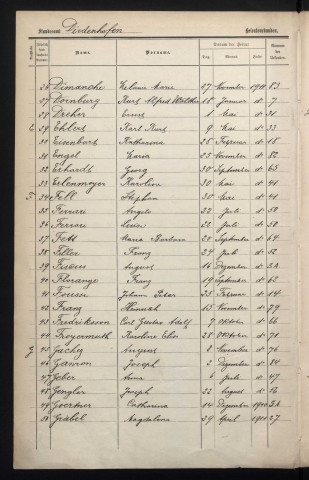 Standesamt Diedenhofen Heiratsurkunden.
Name. Vorname. Datum der Heirat Nummer der Urkunden
Tag. Monat. Jahr.
26 Dimanche Marie 27 November 1910 83
27 Dörnburg Kurt Alfred Walther 18 Januar d 7
28 Dreher Ernst 1 Mai d 31
E 29 Ehlers Karl Kurt 9 Mai d 33
30 Eisenbach Katharina 25 Februar d 18
31 Engel Maria 23 November d 82
32 Erhardt Georg 30 September d 63
33 Erlenmeyer Karoline 30 Mai d 41
F 34 Fell Stephan 30 Mai d 41
35 Ferrari Angelo 22 Juli d 50
36 Ferrari Luisa 22 Juli d 50
37 Fett Maria Barbara 20 September d 64
38 Filler Franz 24 Juli d 52
39 August 16 Dezember d
40 Florange Franz 19 September d 62
41 Johann Peter 25 Februar d 14
42 Franz Heinrich 15 November d 79
43 Fredriksson Carl Gustav Adolf 7 Oktober d 66
44 Freyermuth Karoline 28 Oktober d 71
G 45 8 November d 76
46 Ganron Joseph 3 Dezember d 84
47 Geber Anna 6 Juli d 47
48 Gengler Joseph 22 August d
49 Goertner Catharina 14 Dezember 1910
50 Grabel Magdalena 29 April 1910 27